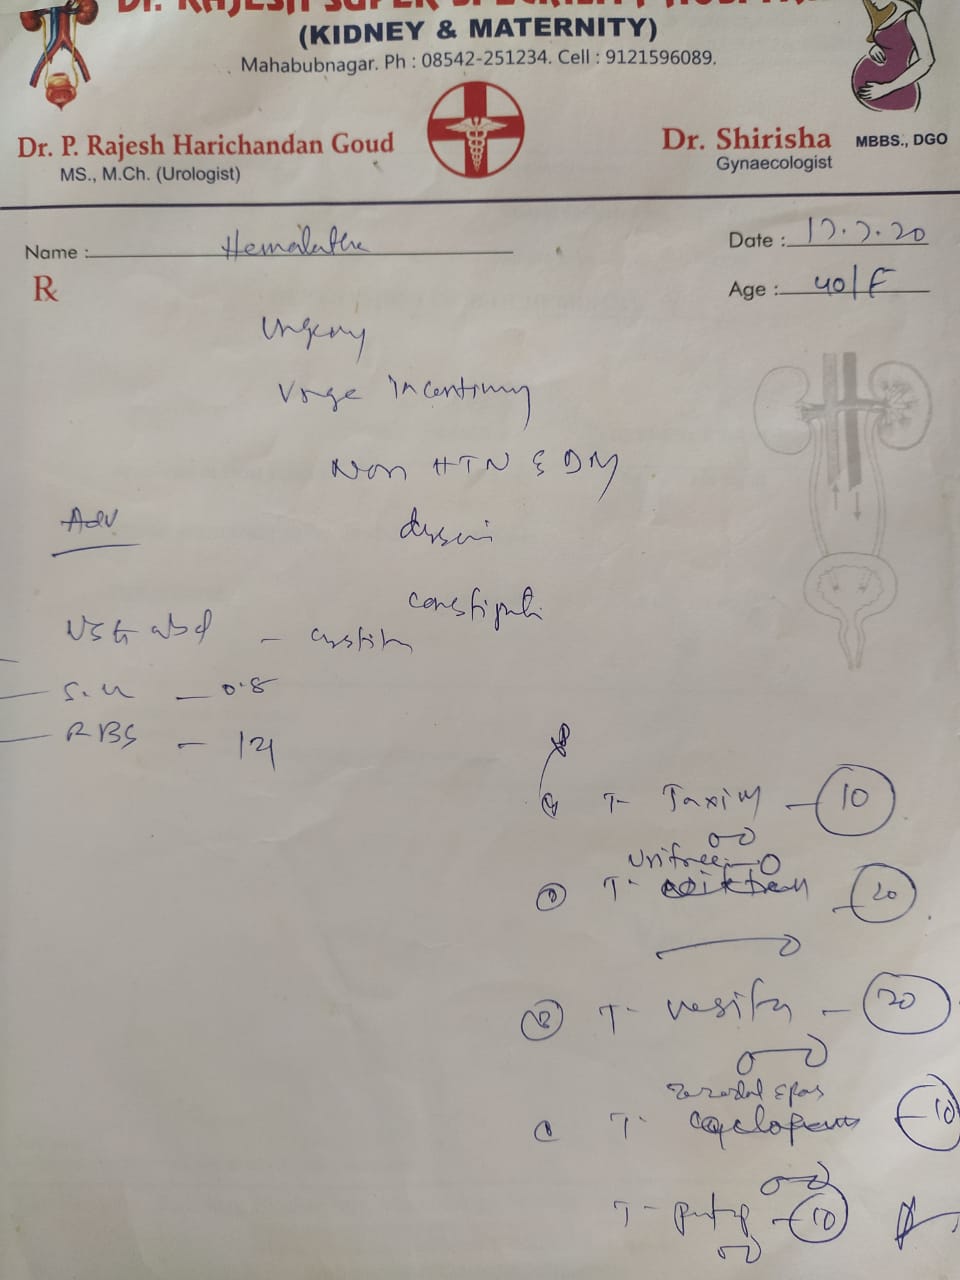 Dr. RAJESH SUPER SPECIALITY HOSPITAL
(KIDNEY & MATERNITY)
Mahabubnagar. Ph : 08542-251234. Cell : 9121596089.
Dr. P. Rajesh Harichandan Goud
MS., M.Ch. (Urologist)
Dr. Shirisha MBBS., DGO
Gynaecologist
Name : Hemalatha
Date : 17.7.20
Rx
Age : 40/F
Urgency
Urge incontinency
Non HTN & DM
Adv
constipati
USG abd - cystitis
S. - 0.8
RBS - 121
T- Taxim - 10
Urifree
T- 20
T- - 20
spas
T- - 10
T- - 10